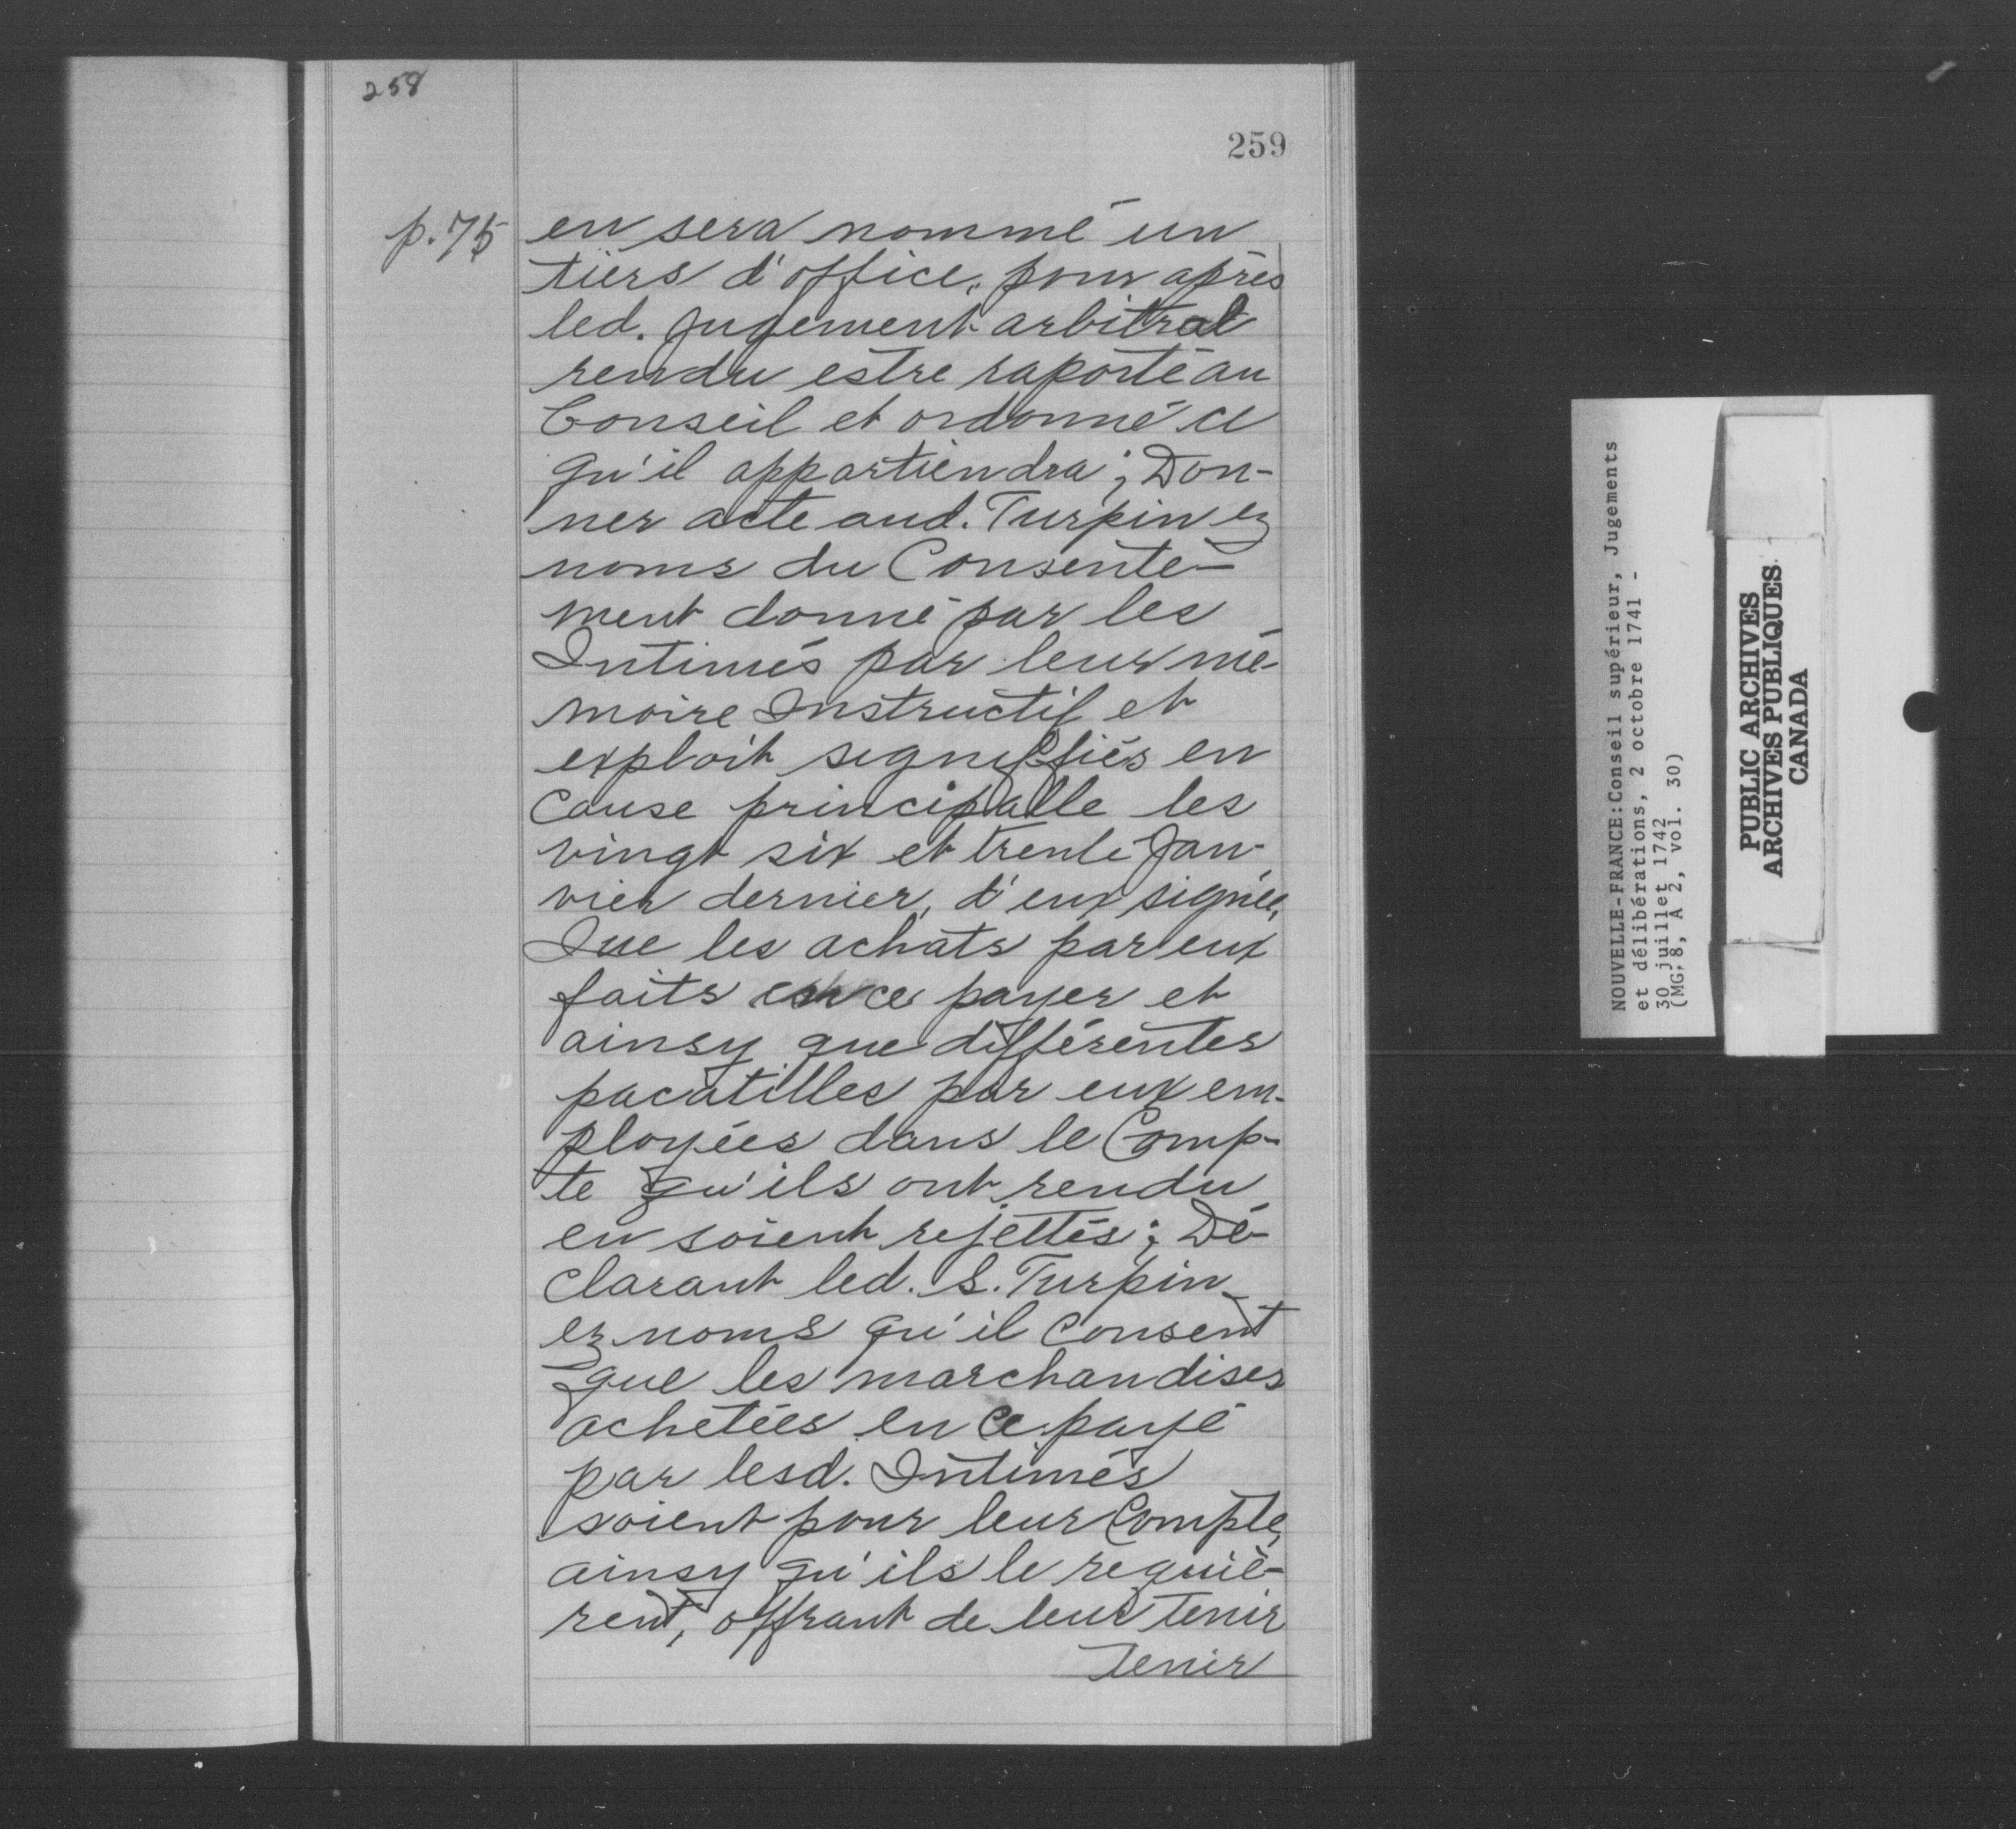 258
259
p. 75
en sera nommé un
tiers d'office, pour après
led. Jugement arbitral
rendu estre raporté au
Conseil et ordonné ce
qu'il appartiendra; Don-
ner acte aud. Turpin ez
noms du Consente-
ment donné par les
Intimés par leur mé-
moire Instructif et
exploit signiffiés en
Cause principalle les
vingt six et trente Jan-
vier dernier, d'eux signée,
Que les achats par eux
faits en ce payer et
ainsy que différentes
pacatilles par eux em-
ployées dans le Comp-
te qu'ils ont rendu
en soient rejettés; Dé-
clarant led. S. Turpin
ez noms qu'il Consent
que les marchandises
achetées en ce payé
par lesd. Intimés
soient pour leur Compte,
ainsy qu'ils le requiè-
rent, offrant de leur tenir
Tenir
NOUVELLE-FRANCE:Conseil supérieur, Jugements
et délibérations, 2 octobre 1741 -
30 juillet 1742
(MG 8, A 2, vol. 30)
PUBLIC ARCHIVES
ARCHIVES PUBLIQUES
CANADA